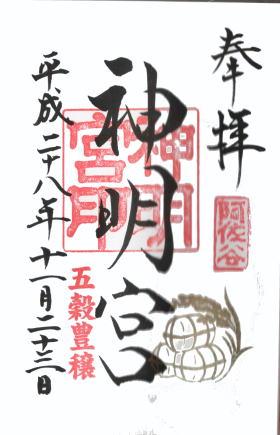 奉拝
阿佐谷
神明宮
神明宮印
五穀豊穣
平成二十八年十一月二十三日